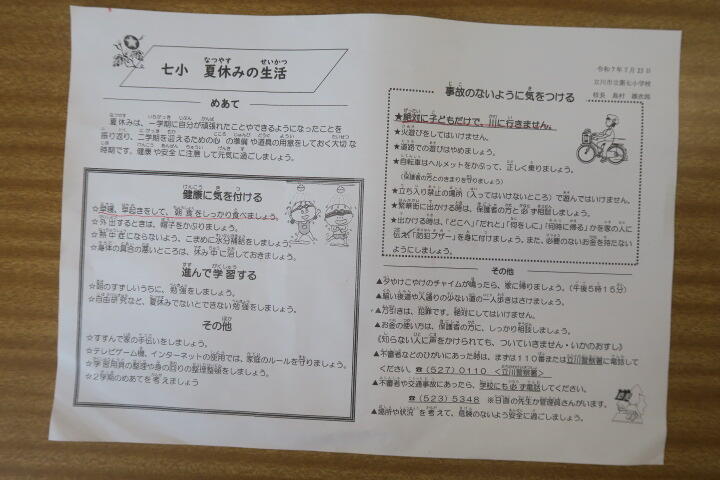 七小 夏休みの生活
めあて
夏休みは、一学期に自分が頑張れたことやできるようになったことを
振り返り、二学期を迎えるための心の準備や道具の用意をしておく大切な
時期です。健康や安全に注意して元気に過ごしましょう。
健康に気を付ける
☆早寝、早起きをして、朝食をしっかり食べましょう。
☆外出するときは、帽子をかぶりましょう。
☆熱中症にならないよう、こまめに水分補給をしましょう。
☆身体の具合の悪いところは、休み中に治しておきましょう。
進んで学習する
☆朝のすずしいうちに、勉強をしましょう。
☆自由研究など、夏休みでないとできない勉強をしましょう。
その他
☆すすんで家の手伝いをしましょう。
☆テレビゲーム機、インターネットの使用では、家庭のルールを守りましょう。
☆学習用具の整理や身の回りの整理整頓をしましょう。
☆2学期のめあてを考えましょう
令和7年7月23日
立川市立第七小学校
校長
事故のないように気をつける
★絶対に子どもだけで、川に行きません。
★火遊びをしてはいけません。
★道路での遊びはやめましょう。
★自転車はヘルメットをかぶって、正しく乗りましょう。
(保護者の方とのきまりを守りましょう)
★立ち入り禁止の場所(入ってはいけないところ)で遊んではいけません。
★繁華街に出かける時は、保護者の方と必ず相談しましょう。
★出かける時は、「どこへ」「だれと」「何をしに」「何時に帰る」かを家の人に
伝え、「防犯ブザー」を身に付けましょう。また、必要のないお金を持たない
ようにしましょう。
その他
▲夕やけこやけのチャイムが鳴ったら、家に帰りましょう。(午後5時15分)
▲暗い夜道や人通りの少ない道の一人歩きはさけましょう。
▲万引きは、犯罪です。絶対にしてはいけません。
▲お金の使い方は、保護者の方に、しっかり相談しましょう。
《知らない人に声をかけられても、ついていきません・いかのおすし》
▲不審者などのひがいにあった時は、まずは110番または立川警察署に電話して
ください。☎(527)0110 <立川警察署>
▲不審者や交通事故にあったら、学校にも必ず電話してください。
☎(523)5348 ※日直の先生か管理員さんがいます。
▲場所や状況を考えて、危険のないよう安全に過ごしましょう。